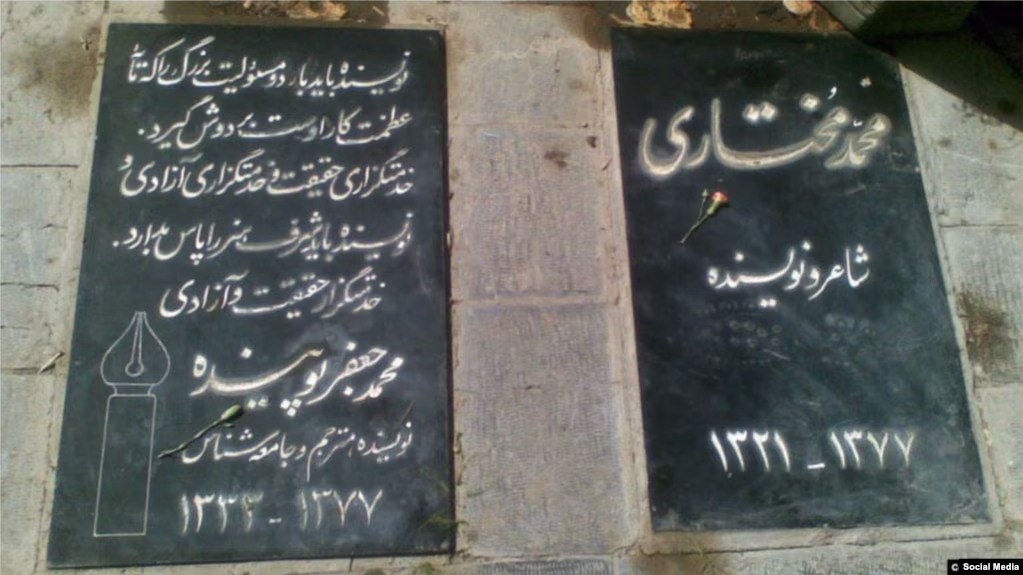 محمّد مُختاری
شاعر و نویسنده
۱۳۲۱ - ۱۳۷۷
نویسنده باید بار دو مسئولیت بزرگ را که
عظمت کار اوست بر دوش گیرد.
خدمتگزاری حقیقت و خدمتگزاری آزادی و
نویسنده باید شرف هنر را پاس بدارد.
خدمتگزار حقیقت و آزادی
محمد جعفر پوینده
نویسنده، مترجم و جامعه شناس
۱۳۳۳ - ۱۳۷۷
© Social Media